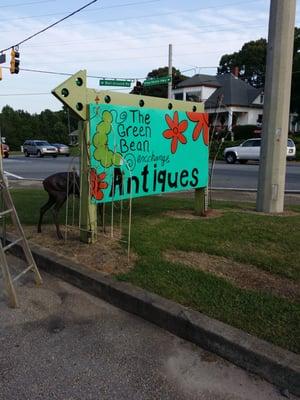 The
Green
Bean
exchange
Antiques